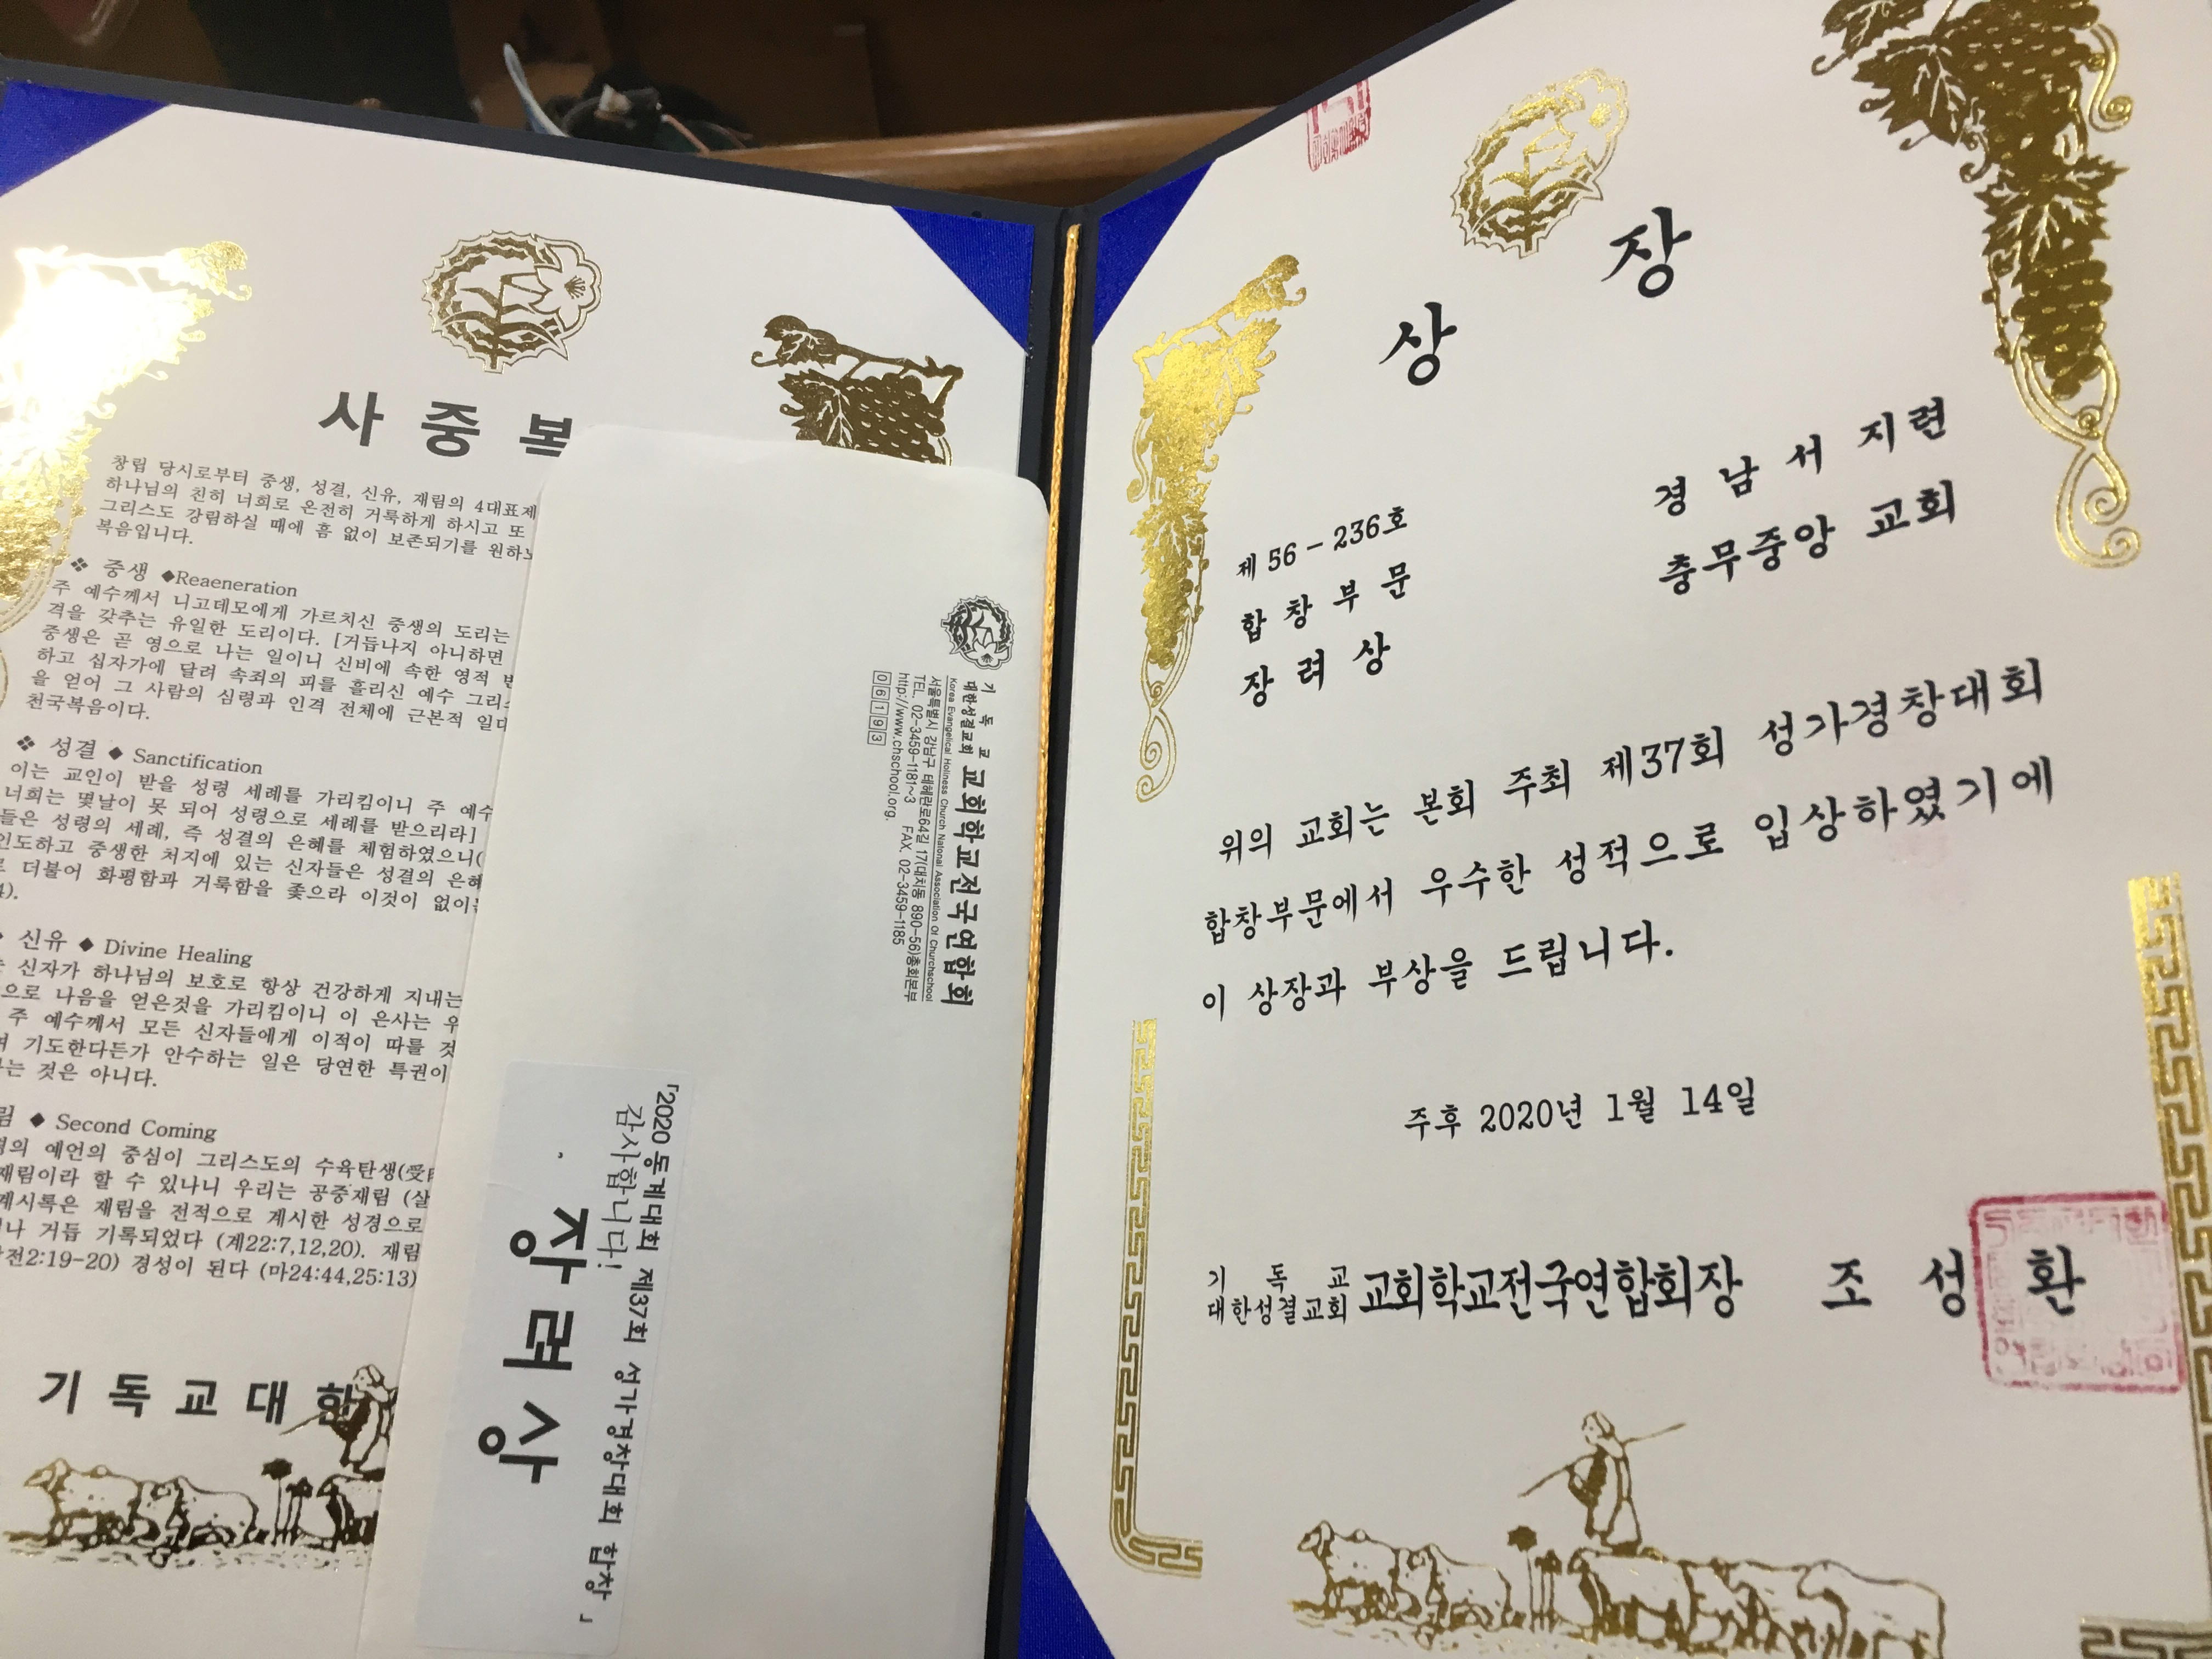 사 중 복
창립 당시로부터 중생, 성결, 신유, 재림의 4대표제
하나님의 친히 너희로 온전히 거룩하게 하시고 또
그리스도 강림하실 때에 흠 없이 보존되기를 원하노
복음입니다.
❖ 중생 ◆Reaeneration
주 예수께서 니고데모에게 가르치신 중생의 도리는
격을 갖추는 유일한 도리이다. [거듭나지 아니하면
중생은 곧 영으로 나는 일이니 신비에 속한 영적
하고 십자가에 달려 속죄의 피를 흘리신 예수 그리
을 얻어 그 사람의 심령과 인격 전체에 근본적 일대
천국복음이다.
❖ 성결 ◆ Sanctification
이는 교인이 받을 성령 세례를 가리킴이니 주 예수
너희는 몇날이 못 되어 성령으로 세례를 받으리라]
들은 성령의 세례, 즉 성결의 은혜를 체험하였으니(
인도하고 중생한 처지에 있는 신자들은 성결의 은혜
더불어 화평함과 거룩함을 좇으라 이것이 없이
신유 ◆ Divine Healing
신자가 하나님의 보호로 항상 건강하게 지내는
으로 나음을 얻은것을 가리킴이니 이 은사는 우
주 예수께서 모든 신자들에게 이적이 따를 것
기도한다든가 안수하는 일은 당연한 특권이
는 것은 아니다.
림 ◆ Second Coming
의 예언의 중심이 그리스도의 수육탄생(受
재림이라 할 수 있나니 우리는 공중재림 (살
계시록은 재림을 전적으로 계시한 성경으로
나 거듭 기록되었다 (계22:7,12,20). 재림
전2:19-20) 경성이 된다 (마24:44,25:13)
기 독 교 대 한
기 독 교
대한성결교회 교회학교전국연합회
Korea Evangelical Holiness Church National Association Of Churchschool
서울특별시 강남구 테헤란로64길 17(대치동 890-56)총회본부
TEL. 02-3459-1181~3 FAX. 02-3459-1185
http://www.chschool.org.
06193
「2020 동계대회 제37회 성가경창대회 합창 」
감사합니다!
장려상
상 장
제 56 - 236호
합 창 부 문
장 려 상
경 남 서 지련
충무중앙 교회
위의 교회는 본회 주최 제37회 성가경창대회
합창부문에서 우수한 성적으로 입상하였기에
이 상장과 부상을 드립니다.
주후 2020년 1월 14일
기 독 교
대한성결교회 교회학교전국연합회장 조 성 환